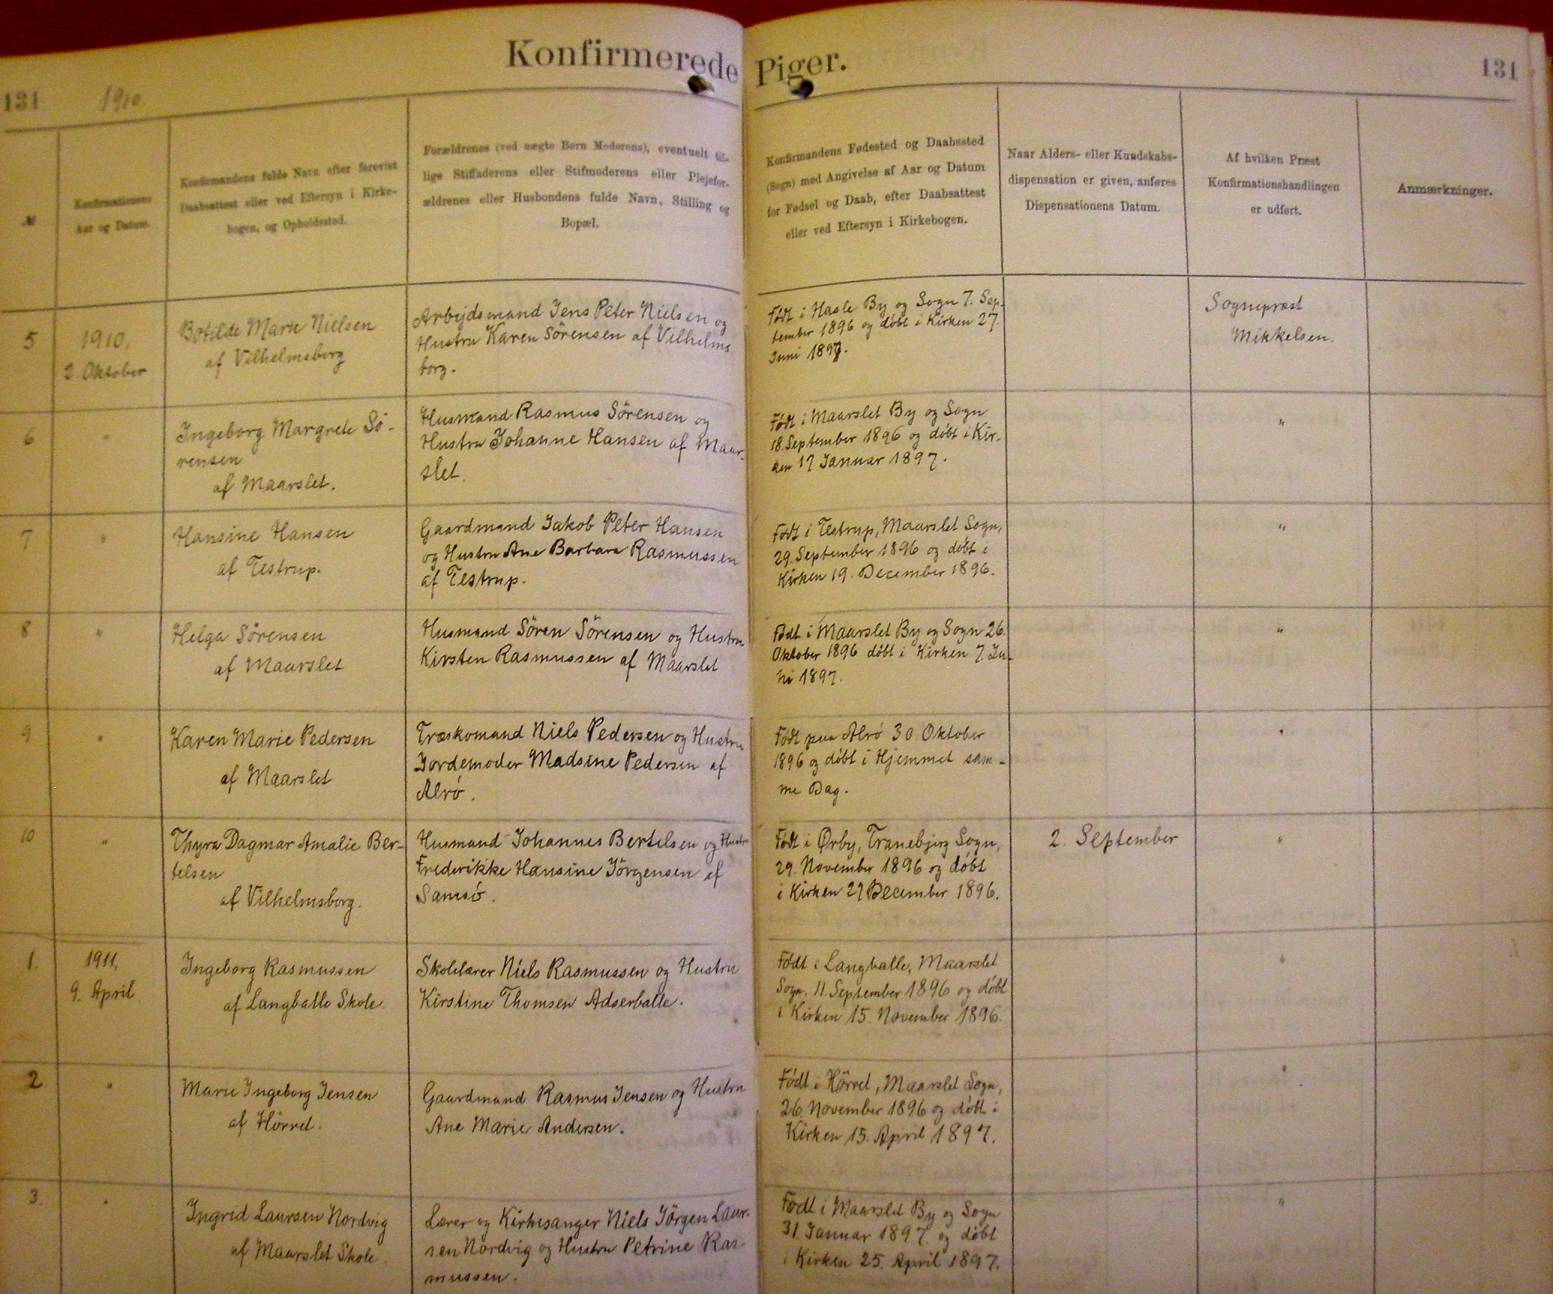 Konfirmerede Piger.
131
1910
131
№
Konfirmationens
Aar og Datum.
Konfirmandens fulde Navn efter forevist
Daabsattest eller ved Eftersyn i Kirke-
bogen, og Opholdssted.
Forældrenes (ved uægte Børn Moderens), eventuelt til-
lige Stiffaderens eller Stifmoderens eller Plejefor-
ældrenes eller Husbondens fulde Navn, Stilling og
Bopæl.
Konfirmandens Fødested og Daabssted
(Sogn) med Angivelse af Aar og Datum
for Fødsel og Daab, efter Daabsattest
eller ved Eftersyn i Kirkebogen.
Naar Alders- eller Kundskabs-
dispensation er given, anføres
Dispensationens Datum.
Af hvilken Præst
Konfirmationshandlingen
er udført.
Anmærkninger.
5
1910,
2. Oktober
Botilde Marie Nielsen
af Vilhelmsborg
Arbejdsmand Jens Peter Nielsen og
Hustru Karen Sörensen af Vilhelms
borg.
Født i Hasle By og Sogn 7. Sep-
tember 1896 og döbt i Kirken 27.
Juni 1897.
Sognepræst
Mikkelsen.
6
"
Ingeborg Margrete Sö-
rensen
af Maarslet.
Husmand Rasmus Sörensen og
Hustru Johanne Hansen af Maar-
slet.
Født i Maarslet By og Sogn
18. September 1896 og döbt i Kir-
ken 17 Januar 1897.
"
7
"
Hansine Hansen
af Testrup.
Gaardmand Jakob Peter Hansen
og Hustru Ane Barbara Rasmussen
af Testrup.
Født i Testrup, Maarslet Sogn,
29. September 1896 og döbt i
Kirken 19. December 1896.
"
8
"
Helga Sörensen
af Maarslet
Husmand Sören Sörensen og Hustru
Kirsten Rasmussen af Maarslet
Født i Maarslet By og Sogn 26.
Oktober 1896 döbt i Kirken 7. Ju-
ni 1897.
"
9
"
Karen Marie Pedersen
af Maarslet
Træskomand Niels Pedersen og Hustru
Jordemoder Madsine Pedersen af
Alrö.
Født paa Alrö 30. Oktober
1896 og döbt i Hjemmet sam-
me Dag.
"
10
"
Thyra Dagmar Amalie Ber-
telsen
af Vilhelmsborg.
Husmand Johannes Bertelsen og Hustr
Frederikke Hansine Jörgensen af
Samsö.
Født i Ørby, Tranebjerg Sogn,
29. November 1896 og döbt
i Kirken 27 December 1896.
2. September
"
1.
1911,
9. April
Ingeborg Rasmussen
af Langballe Skole.
Skolelærer Niels Rasmussen og Hustru
Kirstine Thomsen Adserballe.
Födt i Langballe, Maarslet
Sogn. 11. September 1896 og döbt
i Kirken 15. November 1896.
"
2
"
Marie Ingeborg Jensen
af Hörret.
Gaardmand Rasmus Jensen og Hustru
Ane Marie Andersen.
Født i Hörret, Maarslet Sogn,
26. November 1896 og döbt i
Kirken 15. April 1897.
"
3.
"
Ingrid Laursen Nordvig
af Maarslet Skole.
Lærer og Kirkesanger Niels Jörgen Laur-
sen Nordvig og Hustru Petrine Ras-
mussen.
Født i Maarslet By og Sogn
31. Januar 1897 og döbt
i Kirken 25. April 1897.
"